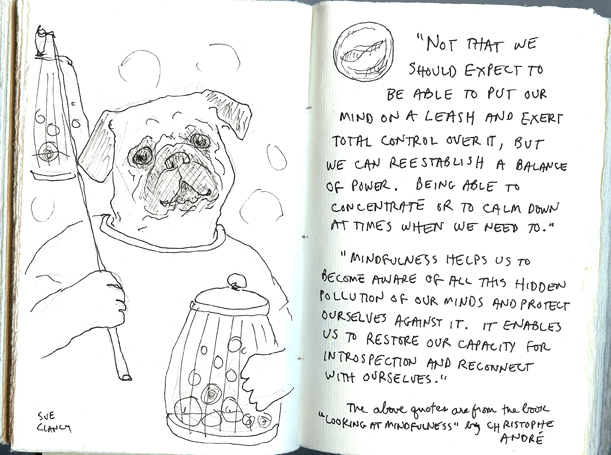 "NOT THAT WE
SHOULD EXPECT TO
BE ABLE TO PUT OUR
MIND ON A LEASH AND EXERT
TOTAL CONTROL OVER IT, BUT
WE CAN REESTABLISH A BALANCE
OF POWER. BEING ABLE TO
CONCENTRATE OR TO CALM DOWN
AT TIMES WHEN WE NEED TO."
"MINDFULNESS HELPS US TO
BECOME AWARE OF ALL THIS HIDDEN
POLLUTION OF OUR MINDS AND PROTECT
OURSELVES AGAINST IT. IT ENABLES
US TO RESTORE OUR CAPACITY FOR
INTROSPECTION AND RECONNECT
WITH OURSELVES."
The above quotes are from the book
"LOOKING AT MINDFULNESS" by CHRISTOPHE
ANDRÉ
SUE
CLANCY